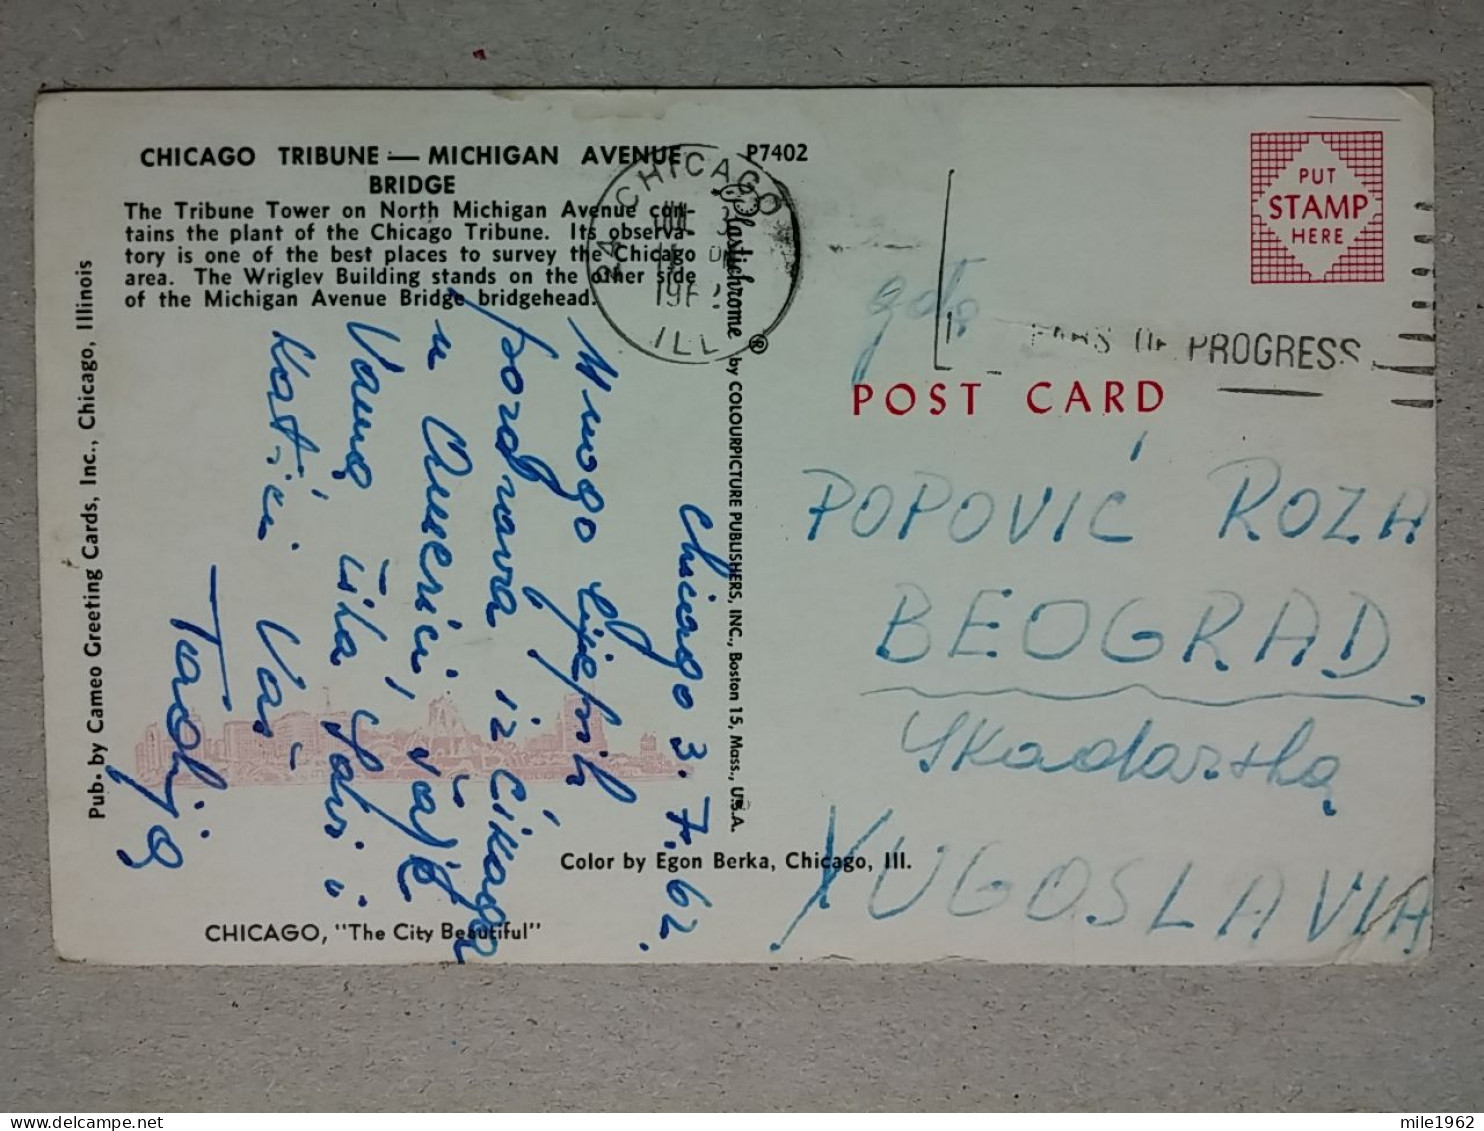 CHICAGO TRIBUNE — MICHIGAN AVENUE
BRIDGE
The Tribune Tower on North Michigan Avenue con-
tains the plant of the Chicago Tribune. Its observa-
tory is one of the best places to survey the Chicago
area. The Wrigley Building stands on the other side
of the Michigan Avenue Bridge bridgehead.
P7402
CHICAGO
ILL
Plastichrome ® by COLOURPICTURE PUBLISHERS, INC., Boston 15, Mass., U.S.A.
Pub. by Cameo Greeting Cards, Inc., Chicago, Illinois
Chicago 3. 7. 62.
Mnogo lijepih
pozdrava iz Čikaga
u Americi, šalje
Vama
Vaš
Tadija
PUT
STAMP
HERE
OF PROGRESS
POST CARD
POPOVIĆ ROZA
BEOGRAD
Skadarska
YUGOSLAVIA
Color by Egon Berka, Chicago, Ill.
CHICAGO, "The City Beautiful"
mile1962